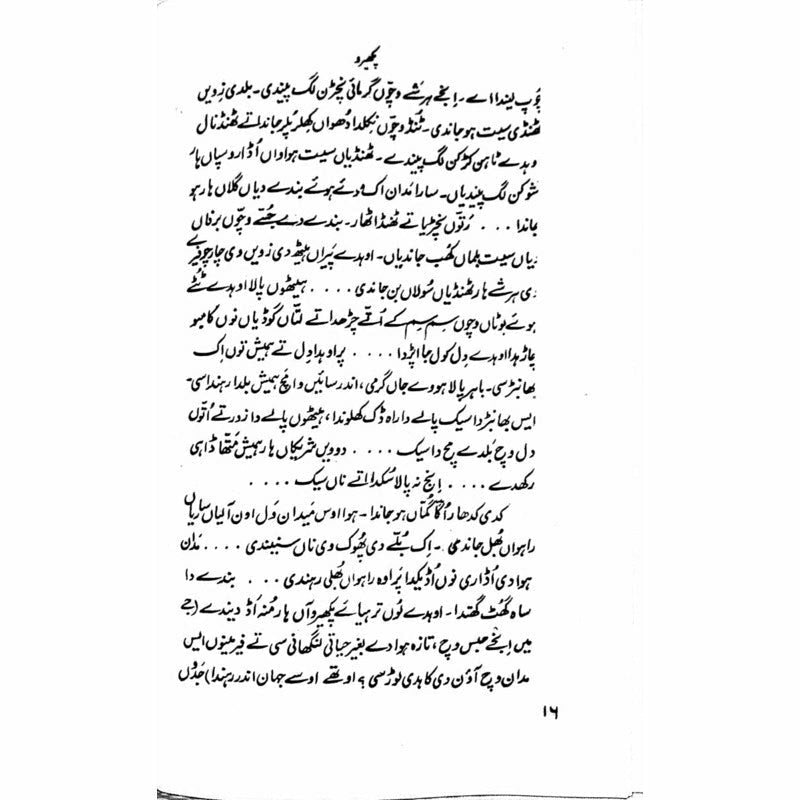 پکھیرو
چُپ لیندا اے۔ اِنجے ہر شے وچّوں گرمائی نچڑن لگ پیندی۔ بلدی زویں
ٹھنڈی سیت ہو جاندی۔ ٹنڈ وچّوں نکلدا دُھواں کھلر پلر جاندا تے ٹھنڈ نال
وہدے ٹاہن کڑکن لگ پیندے۔ ٹھنڈیاں سیت ہواواں اُڈارو سپاں ہار
شوکن لگ پیندیاں۔ سارا مَدان اِک مُدئے ہوئے بندے دیاں گلاں ہار ہو
جاندا ... رتّوں نچڑیا تے ٹھنڈا ٹھار۔ بندے دے جُتے وچّوں برفاں
دیاں سیت بلماں کُھب جاندیاں۔ اوہدے پیراں ہیٹھ دی زویں وی چار چوفیرے
دی ہر شے ہار ٹھنڈیاں سُولاں بن جاندی .... ہیٹھوں پالا اوہدے ٹُٹے
ہوئے بُوٹاں وچوں سِم سِم کے اُتے چڑھدا تے لتاں گوڈیاں نوں کامبو
چاڑہدا اوہدے دِل کول جا اپڑدا .... پر اوہدا دِل تے ہمیش توں اِک
بھانبڑ سی۔ باہر پالا ہووے جاں گرمی، اندر سائیں وانچ ہمیش بلدا رہندا سی۔
ایس بھانبڑ دا سیک پالے دا راہ ڈک کھلوندا، ہیٹھوں پالے دا زور تے اُتوں
دل وچ بلدے مچ دا سیک .... دوویں شریکاں ہار ہمیش متھا ڈاہی
رکھدے .... اِنج نہ پالا سُکدا اتے ناں سیک ....
کدی کدھار اُکا گُماں ہو جاندا۔ ہوا اوس میدان وَل اون آلیاں ساریاں
راہواں بُھل جاندی۔ اِک بُلّے دی پُھوک وی ناں سنیندی .... مَدان
ہوا دی اُڈاری نوں اُڈیکدا پَر اوہ راہواں بُھلی رہندی ... بندے دا
ساہ گُھٹ گھتدا۔ اوہدے لُوں ترہیائے پکھیروآں ہار مُنہ اَڈ دیندے (جے
میں اِنجے حبس وچ، تازہ ہوا دے بغیر حیاتی لنگھانی سی تے فیر مینوں ایس
مدان وچ آؤن دی کاہدی لوڑ سی؟ اوتھے اوسے جہان اندر رہندا) جدوں
۱۶